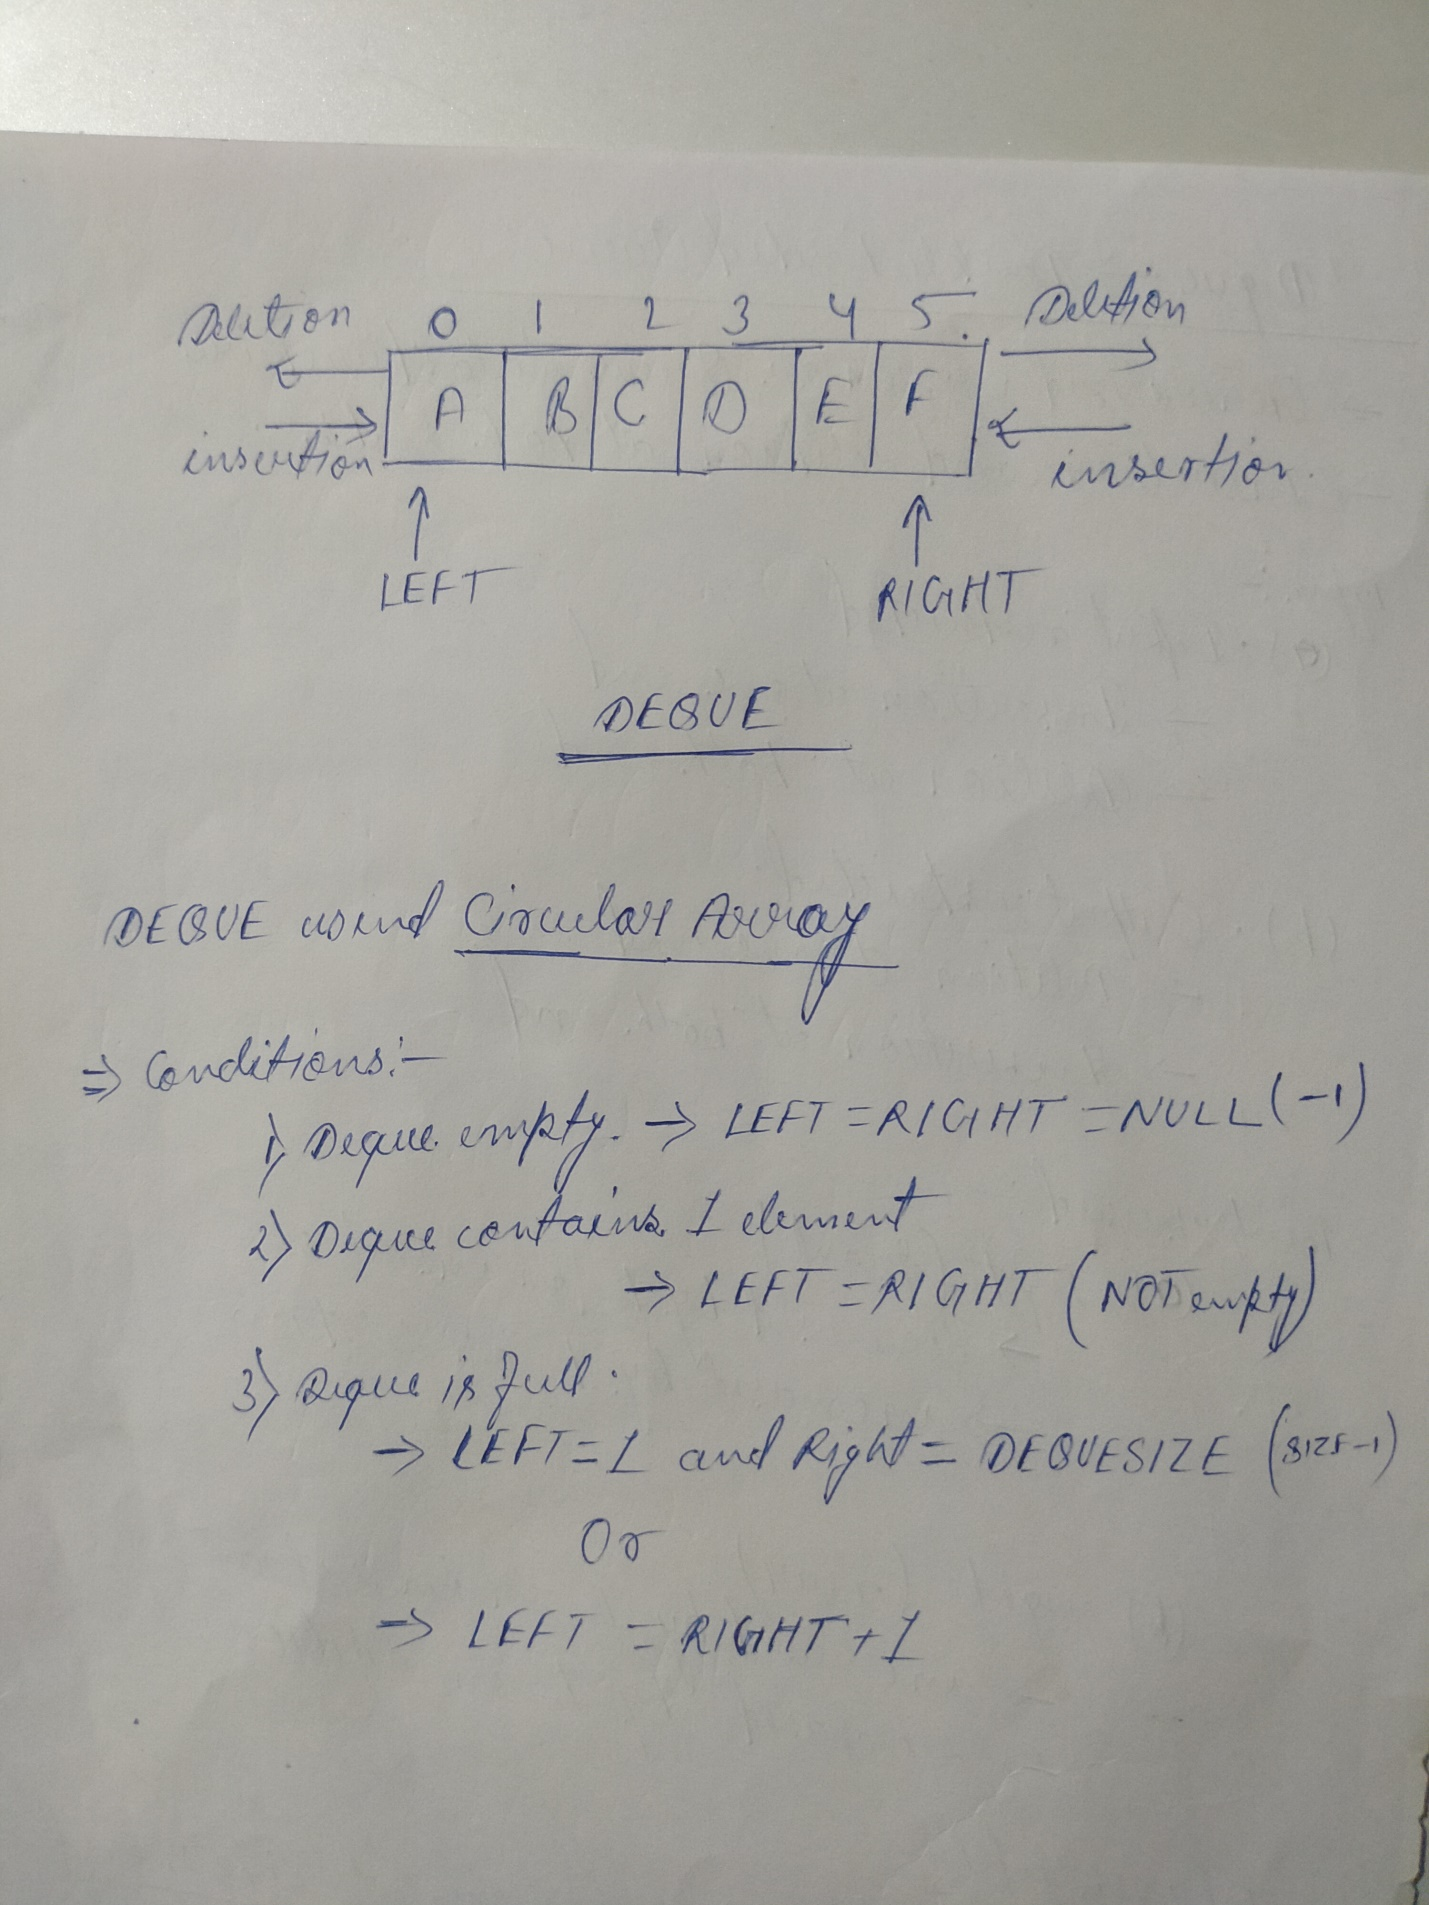 Deletion 0 1 2 3 4 5 Deletion
A B C D E F
insertion insertion.
LEFT RIGHT
DEQUE
DEQUE usind Circular Array
⇒ Conditions:-
1) Deque empty. → LEFT = RIGHT = NULL (-1)
2) Deque contains 1 element
→ LEFT = RIGHT (NOT empty)
3) Deque is full.
→ LEFT = 1 and Right = DEQUESIZE (SIZE-1)
Or
→ LEFT = RIGHT + 1